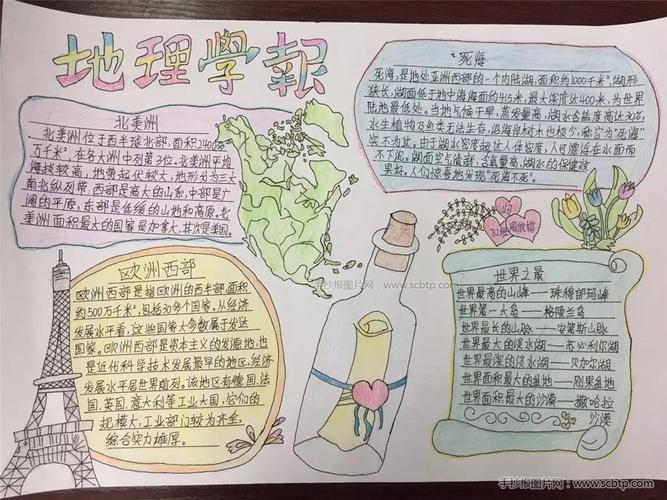 地理學報
北美洲
北美洲位于西半球北部,面积2400多
万千米²,在各大洲中列第3位,北美洲平均
海拔较高,地势起伏较大,地形分为三大
南北纵列带,西部是高大的山系,中部是广
阔的平原,东部是低缓的山地和高原。北
美洲面积最大的国家是加拿大,其次是美国。
死海
死海,是地处亚洲西部的一个内陆湖,面积约1000千米²,湖形
狭长,湖面低于地中海海面约415米,最大深度达400米,为世界
陆地最低处。当地气候干旱,蒸发量高,湖水含盐度高达30%,
水生植物及鱼类无法生存,沿海岸树木也极少,称它为"死海"
实不为过。由于湖水密度超过人体密度,人可漂浮在水面而
不下沉。湖面空气清新,含氧量高,湖水的保健效
果好,人们惊喜地发现"死海不死"。
欧洲西部
欧洲西部是指欧洲的西半部,面积
约500万千米²,包括30多个国家。从经济
发展水平看,这些国家大多数属于发达
国家。欧洲西部是资本主义的发源地,也
是近代科学技术发展最早的地区,经济
发展水平居世界前列。该地区有德国,法
国,英国,意大利等工业大国,它们的
规模大,工业部门较为齐全,
综合实力雄厚。
世界之最
世界最高的山峰——珠穆朗玛峰
世界第一大岛——格陵兰岛
世界最长的山脉——安第斯山脉
世界最大的淡水湖——苏必利尔湖
世界最深的淡水湖——贝加尔湖
世界面积最大的盆地——刚果盆地
世界面积最大的沙漠——撒哈拉
沙漠
手抄报图片网:www.scbtp.com
手抄报图片网:www.scbtp.com